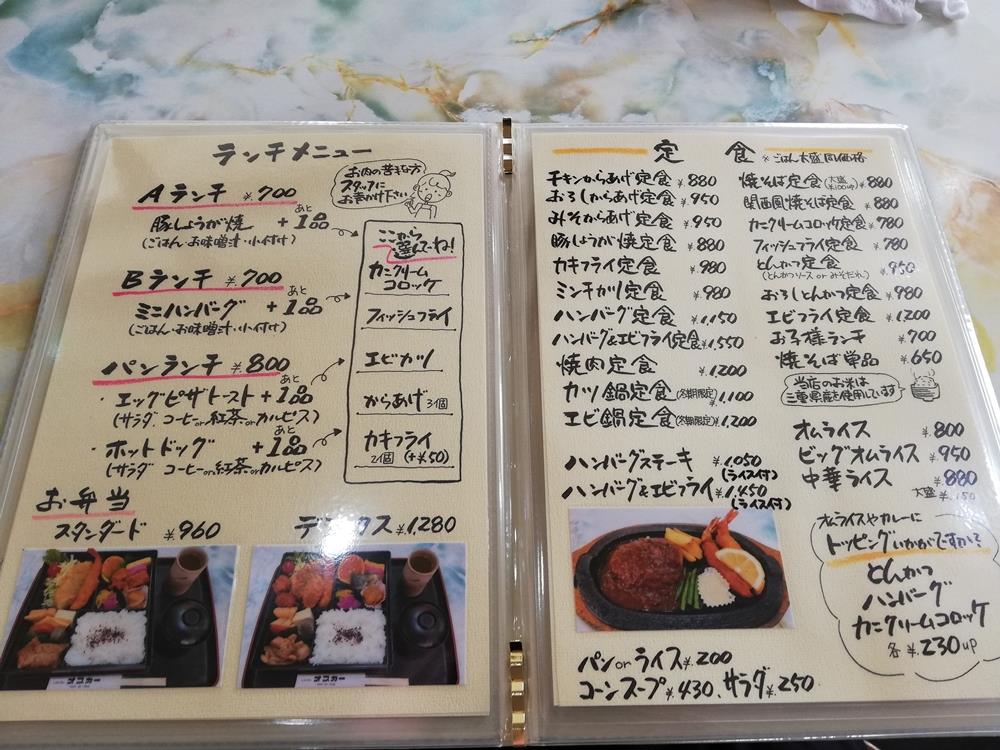 ランチメニュー
お肉の苦手な方
スタッフに
お声がけ下さい
Aランチ ¥700
豚しょうが焼 + あと1品
(ごはん・お味噌汁・小付け)
Bランチ ¥700
ミニハンバーグ + あと1品
(ごはん・お味噌汁・小付け)
パンランチ ¥800
・エッグピザトースト + あと1品
(サラダ コーヒーor紅茶orカルピス)
・ホットドッグ + あと1品
(サラダ コーヒーor紅茶orカルピス)
ここから
選んでね!
カニクリーム
コロッケ
フィッシュフライ
エビカツ
からあげ 3個
カキフライ
2個 (+¥50)
お弁当
スタンダード ¥960
デラックス ¥1,280
オスカー
オスカー
定食 ※ごはん大盛同価格
チキンからあげ定食 ¥880
おろしからあげ定食 ¥950
みそからあげ定食 ¥950
豚しょうが焼定食 ¥880
カキフライ定食 ¥980
ミンチカツ定食 ¥980
ハンバーグ定食 ¥1,150
ハンバーグ&エビフライ定食 ¥1,550
焼肉定食 ¥1200
カツ鍋定食(冬期限定) ¥1,100
エビ鍋定食(冬期限定) ¥1,200
ハンバーグステーキ ¥1,050
(ライス付)
ハンバーグ&エビフライ ¥1,450
(ライス付)
パンorライス ¥200
コーンスープ ¥430、サラダ ¥250
焼そば定食(大盛¥100up) ¥880
関西風焼そば定食 ¥880
カニクリームコロッケ定食 ¥780
フィッシュフライ定食 ¥780
とんかつ定食 ¥950
(とんかつソース or みそだれ)
おろしとんかつ定食 ¥980
エビフライ定食 ¥1,200
お子様ランチ ¥700
焼そば単品 ¥650
当店のお米は
三重県産を使用しています
オムライス ¥800
ビッグオムライス ¥950
中華ライス ¥880
大盛 ¥150
オムライスやカレーに
トッピングいかがですか?
とんかつ
ハンバーグ
カニクリームコロッケ
各 ¥230up